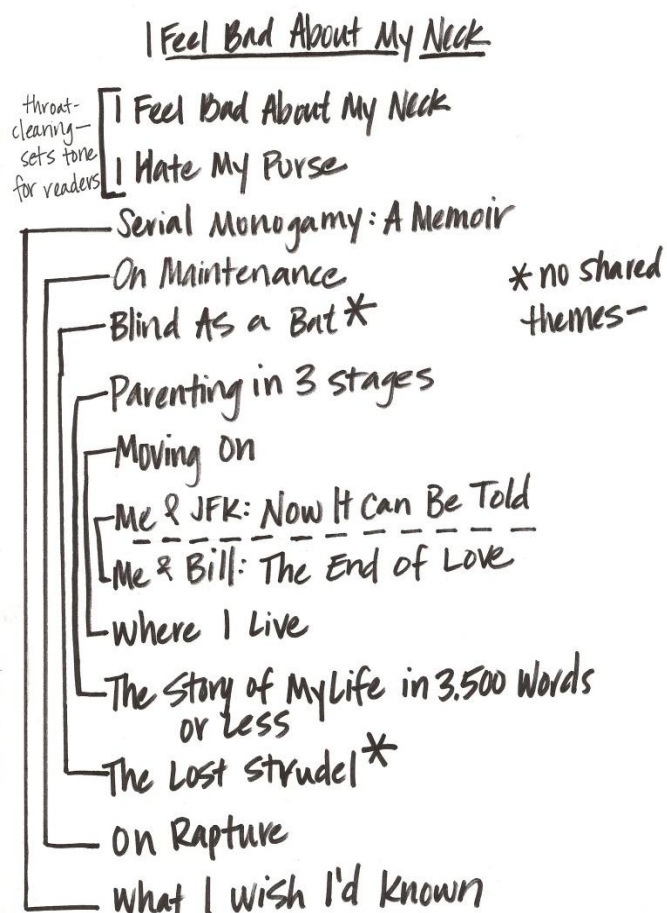 I Feel Bad About My Neck
throat-
cleaning—
sets tone
for readers
I Feel Bad About My Neck
I Hate My Purse
Serial Monogamy: A Memoir
On Maintenance
* no shared
themes—
Blind As a Bat *
Parenting in 3 stages
Moving On
Me & JFK: Now It Can Be Told
Me & Bill: The End of Love
Where I Live
The Story of My Life in 3,500 Words
or Less
The Lost Strudel *
On Rapture
What I Wish I'd Known